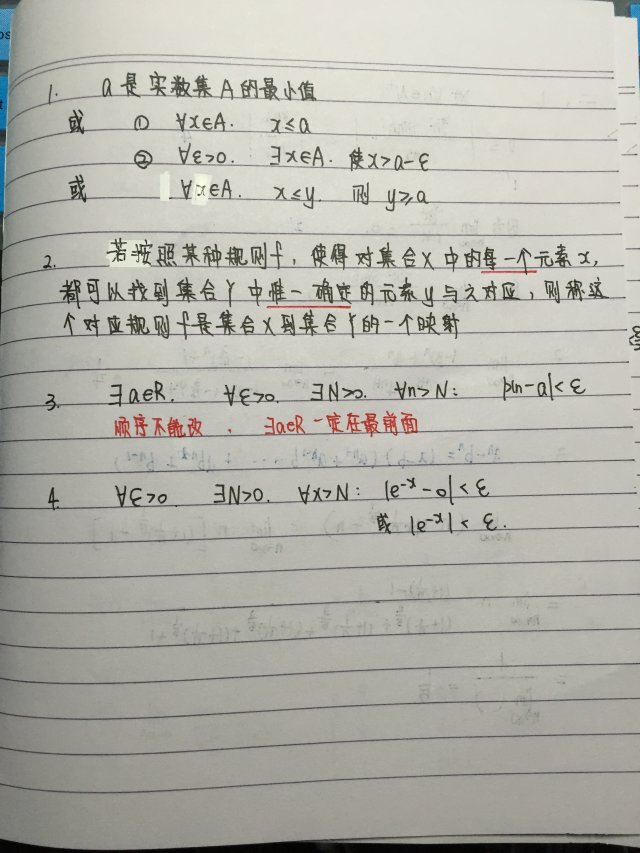 1. a是实数集A的最小值
或 ① ∀x∈A. x≤a
② ∀ε>0. ∃x∈A. 使x>a-ε
或 ∀x∈A. x≤y. 则 y≥a
2. 若按照某种规则f,使得对集合X中的每一个元素x,
都可以找到集合Y中惟一确定的元素y与之对应,则称这
个对应规则f是集合X到集合Y的一个映射
3. ∃a∈R. ∀ε>0. ∃N>0. ∀n>N: |xn-a|<ε
顺序不能改. ∃a∈R一定在最前面
4. ∀ε>0 ∃N>0. ∀x>N: |e⁻ˣ-0|<ε
或 |e⁻ˣ|<ε.